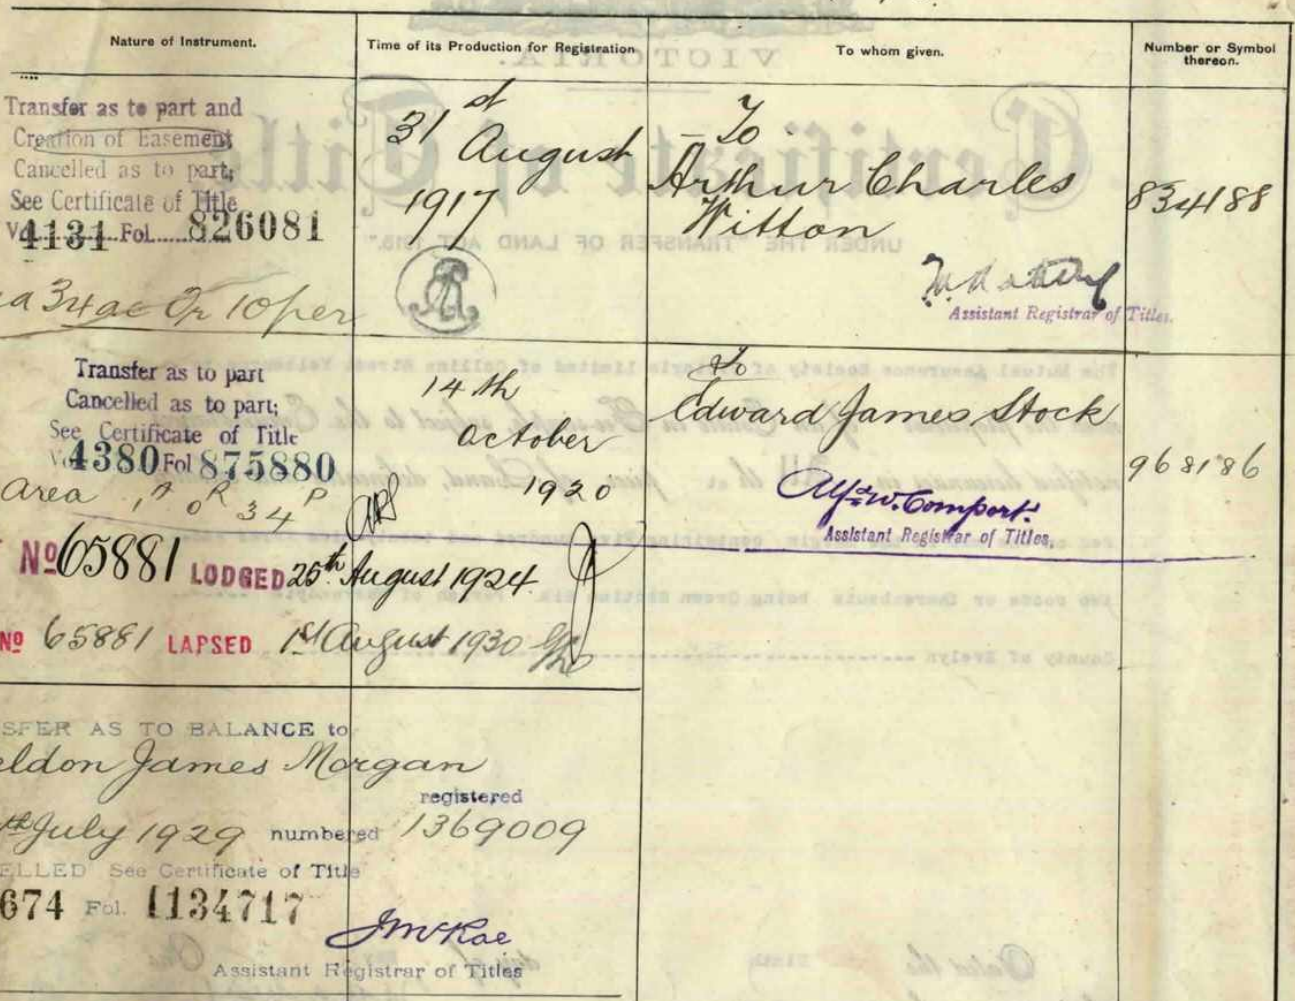 Nature of Instrument.
Time of its Production for Registration
To whom given.
Number or Symbol thereon.
Transfer as to part and
Creation of Easement
Cancelled as to part;
See Certificate of Title
4131 Fol. 826081
31st August 1917
To
Arthur Charles
Witton
Assistant Registrar of Titles.
834188
Transfer as to part
Cancelled as to part;
See Certificate of Title
4380 Fol 875880
Area 1A 0R 34P
14th
October
1920
To
Edward James Stock
Alf. W. Comport.
Assistant Registrar of Titles.
968186
No 65881 LODGED 25th August 1924.
No 65881 LAPSED 1st August 1930
SFER AS TO BALANCE to
eldon James Morgan
registered
July 1929 numbered 1369009
ELLED See Certificate of Title
674 Fol. 1134717
J McRae
Assistant Registrar of Titles
VICTORIA.
Certificate of Title
UNDER THE "TRANSFER OF LAND ACT 1915."
County of Evelyn